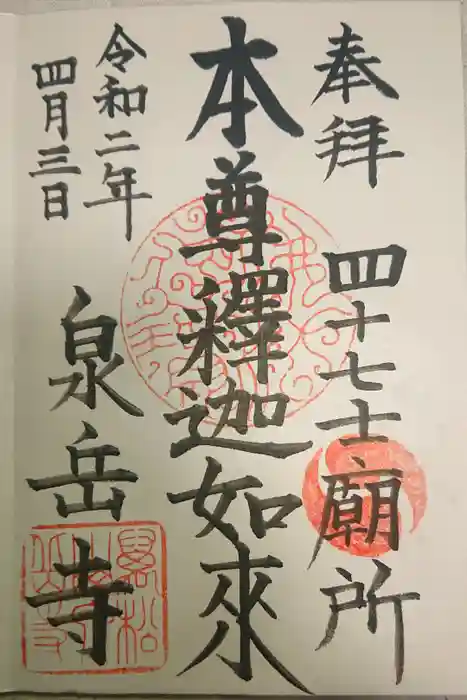 奉拝　四十七士廟所
本尊釋迦如來
令和二年
四月三日
泉岳寺